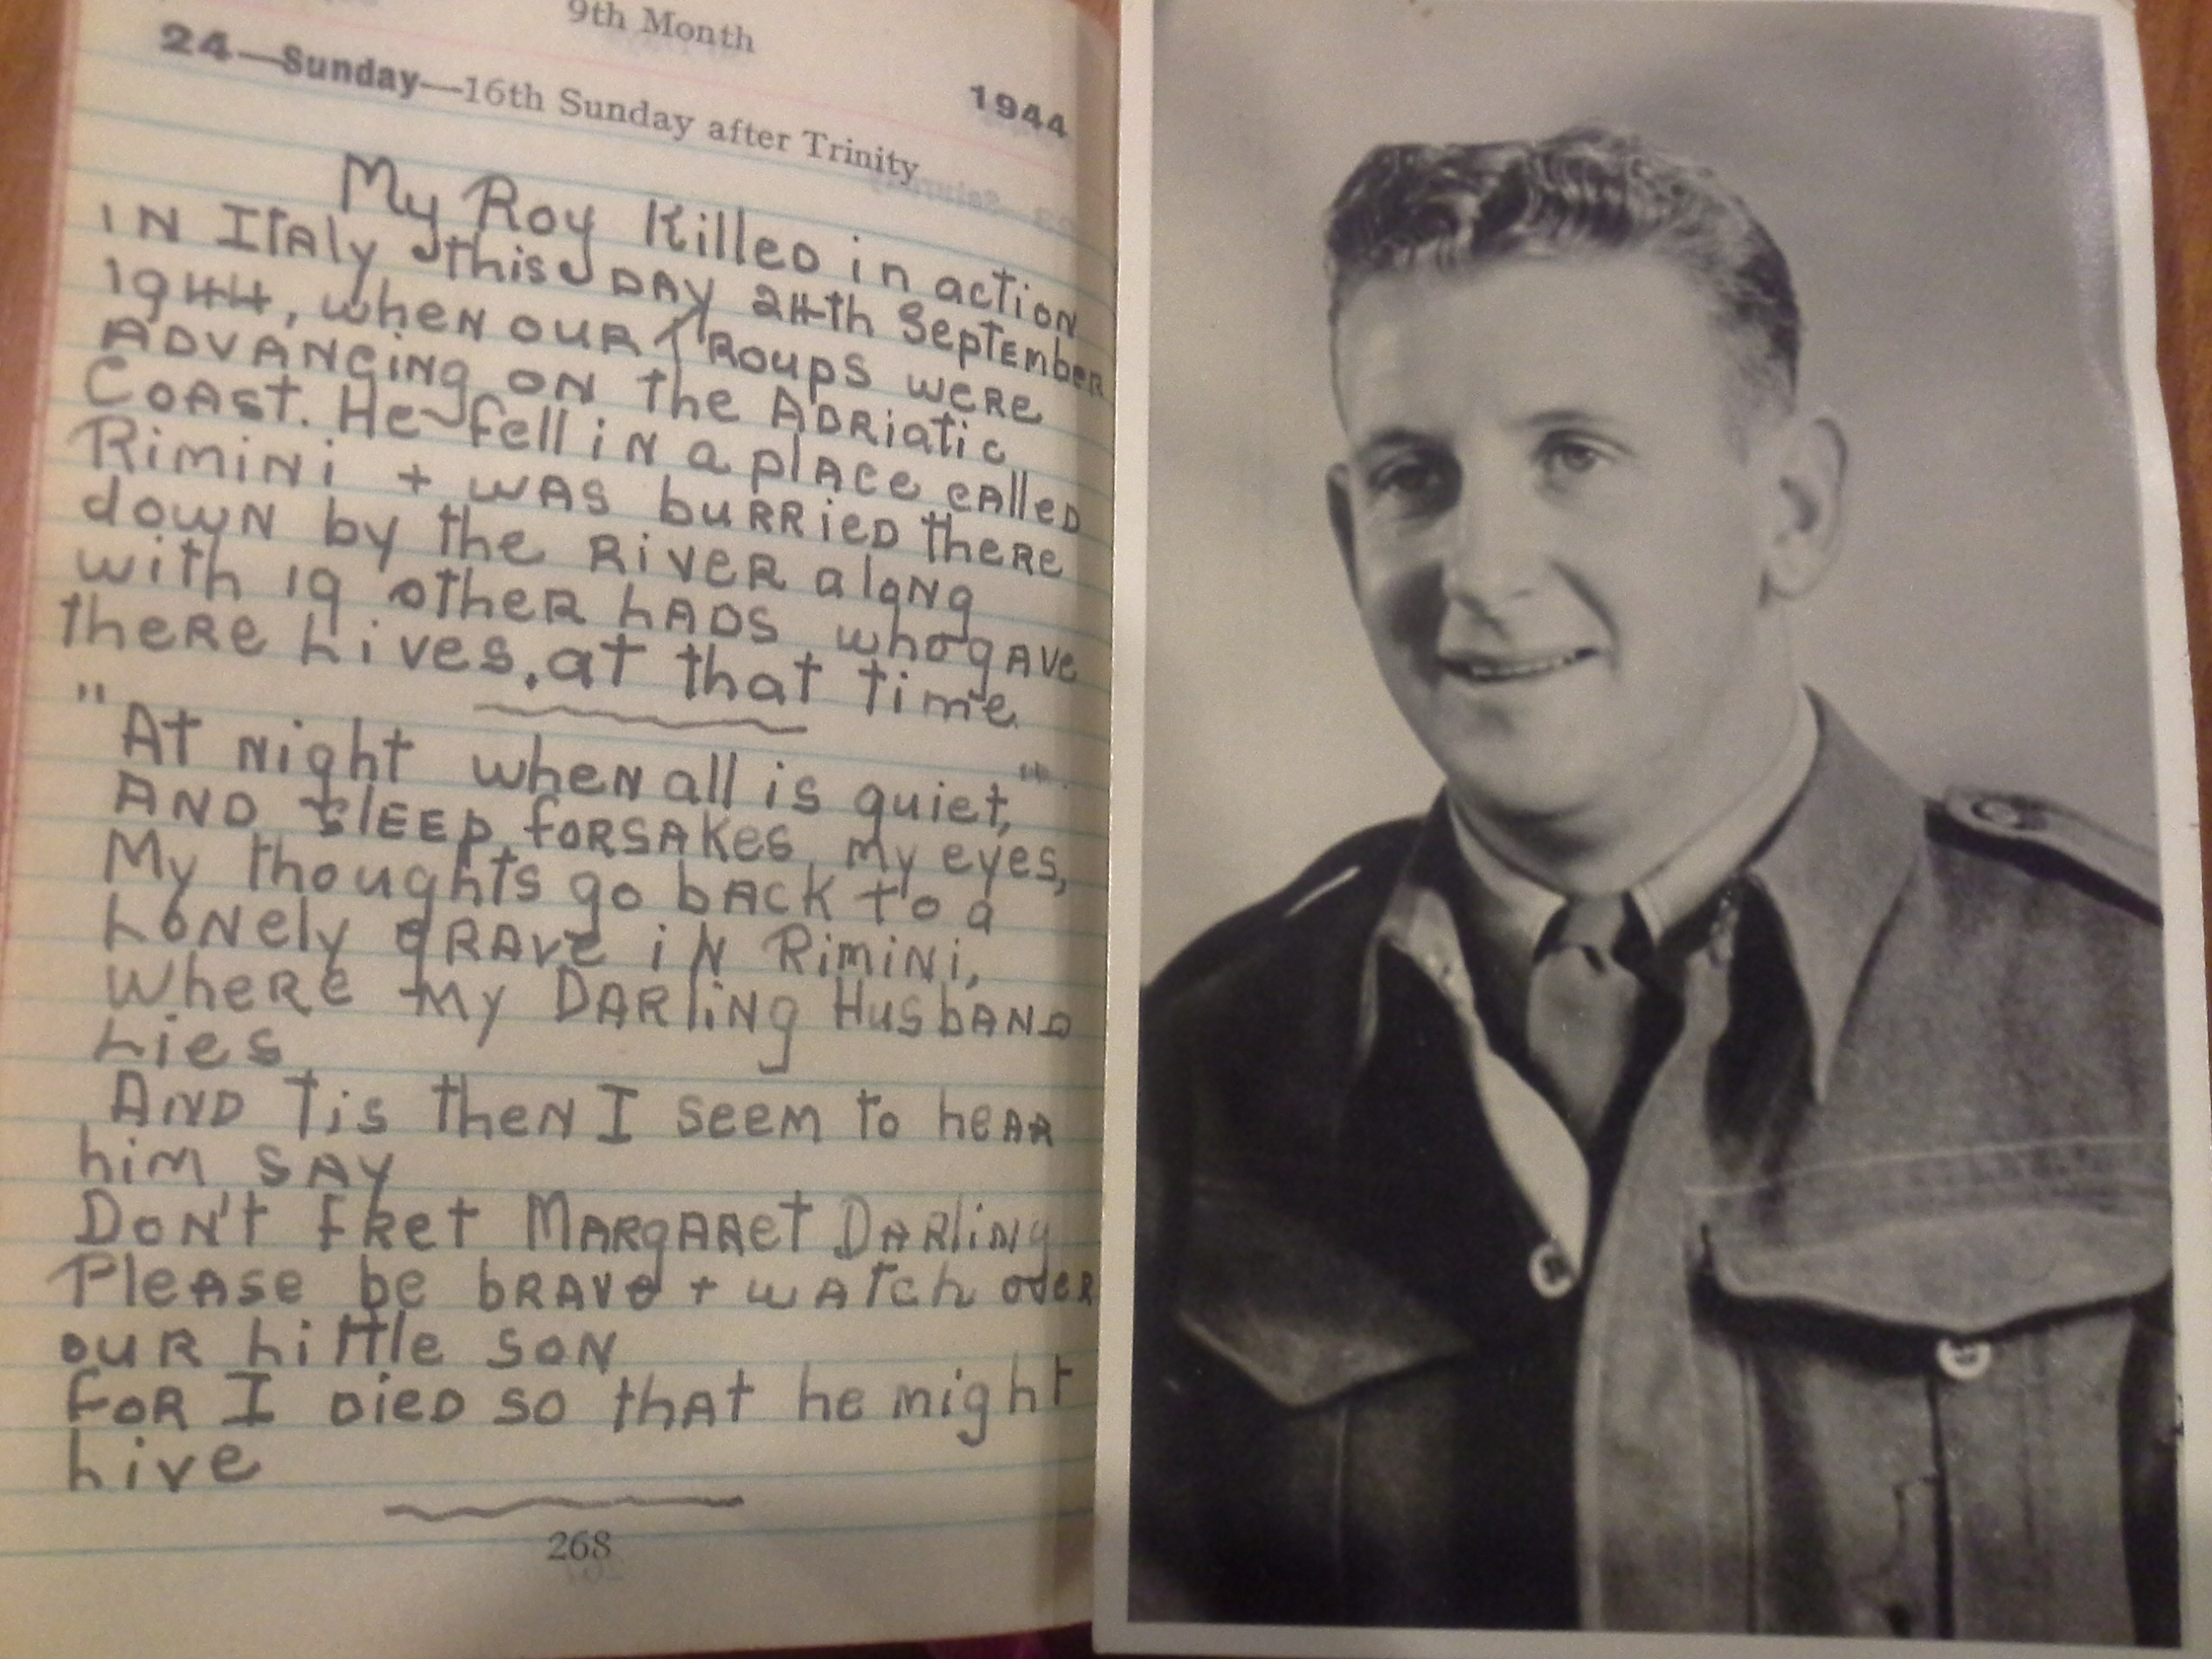 9th Month
24—Sunday—16th Sunday after Trinity
1944
My Roy Killed in action
IN ITAly this DAY 24th SepTEmbeR
1944, wheN OUR TROUPS weRe
ADVANciNg ON the ADRiatic
COAST. He fell iN a plAce cAlleD
RimiNi + WAS buRRieD theRe
dowN by the RiVeR aloNg
with 19 otheR LADS who gAve
theRe Lives. at that time.
"At Night wheN all is quiet,"
AND slEEp foRSAKes my eyes,
My thoughts go bACK to a
LoNely gRAve iN RimiNi,
WheRe My DARliNg HusbAND
Lies
AND Tis theN I seem to heAR
him SAY
DoN't fRet MARgARet DARliNg
PleAse be bRAve + wATch oveR
ouR Little soN
foR I DieD so thAt he might
Live
268